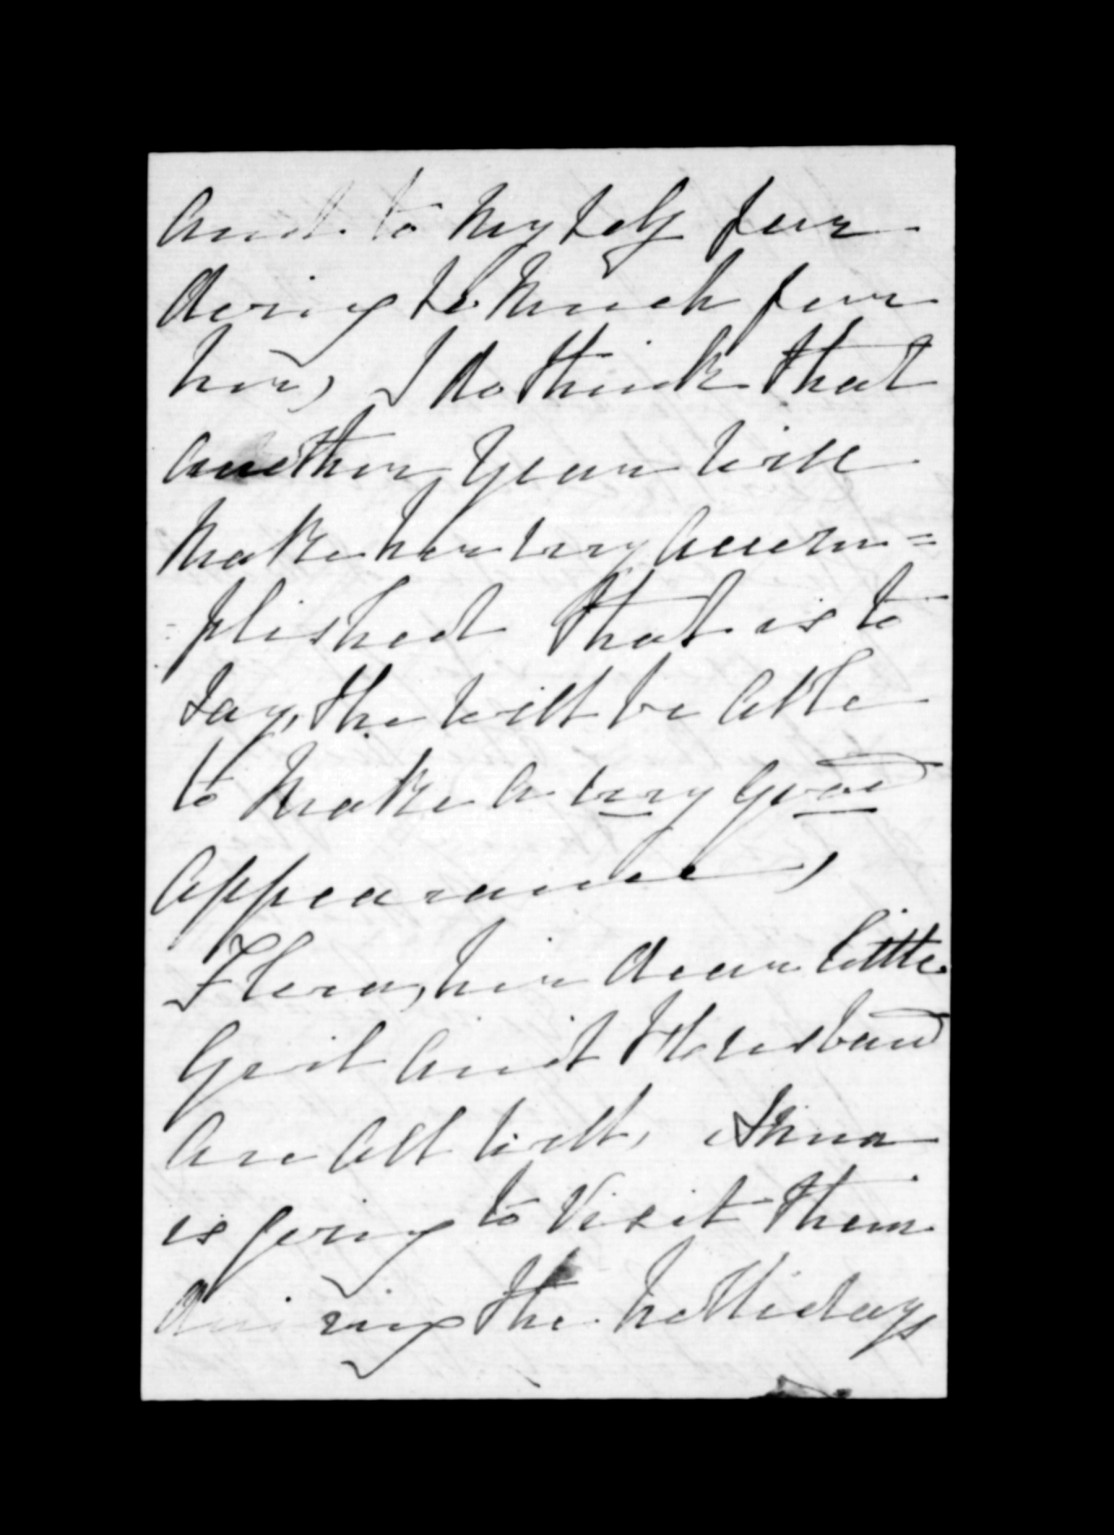 and to myself four
doing so much four
her, I do think that
another year will
make her very accom=
=plished that is to
say, she will be able
to make a very good
appearance,
Flora, her dear little
Girl and Husband
are all well, Anna
is going to visit them
during the hollidays